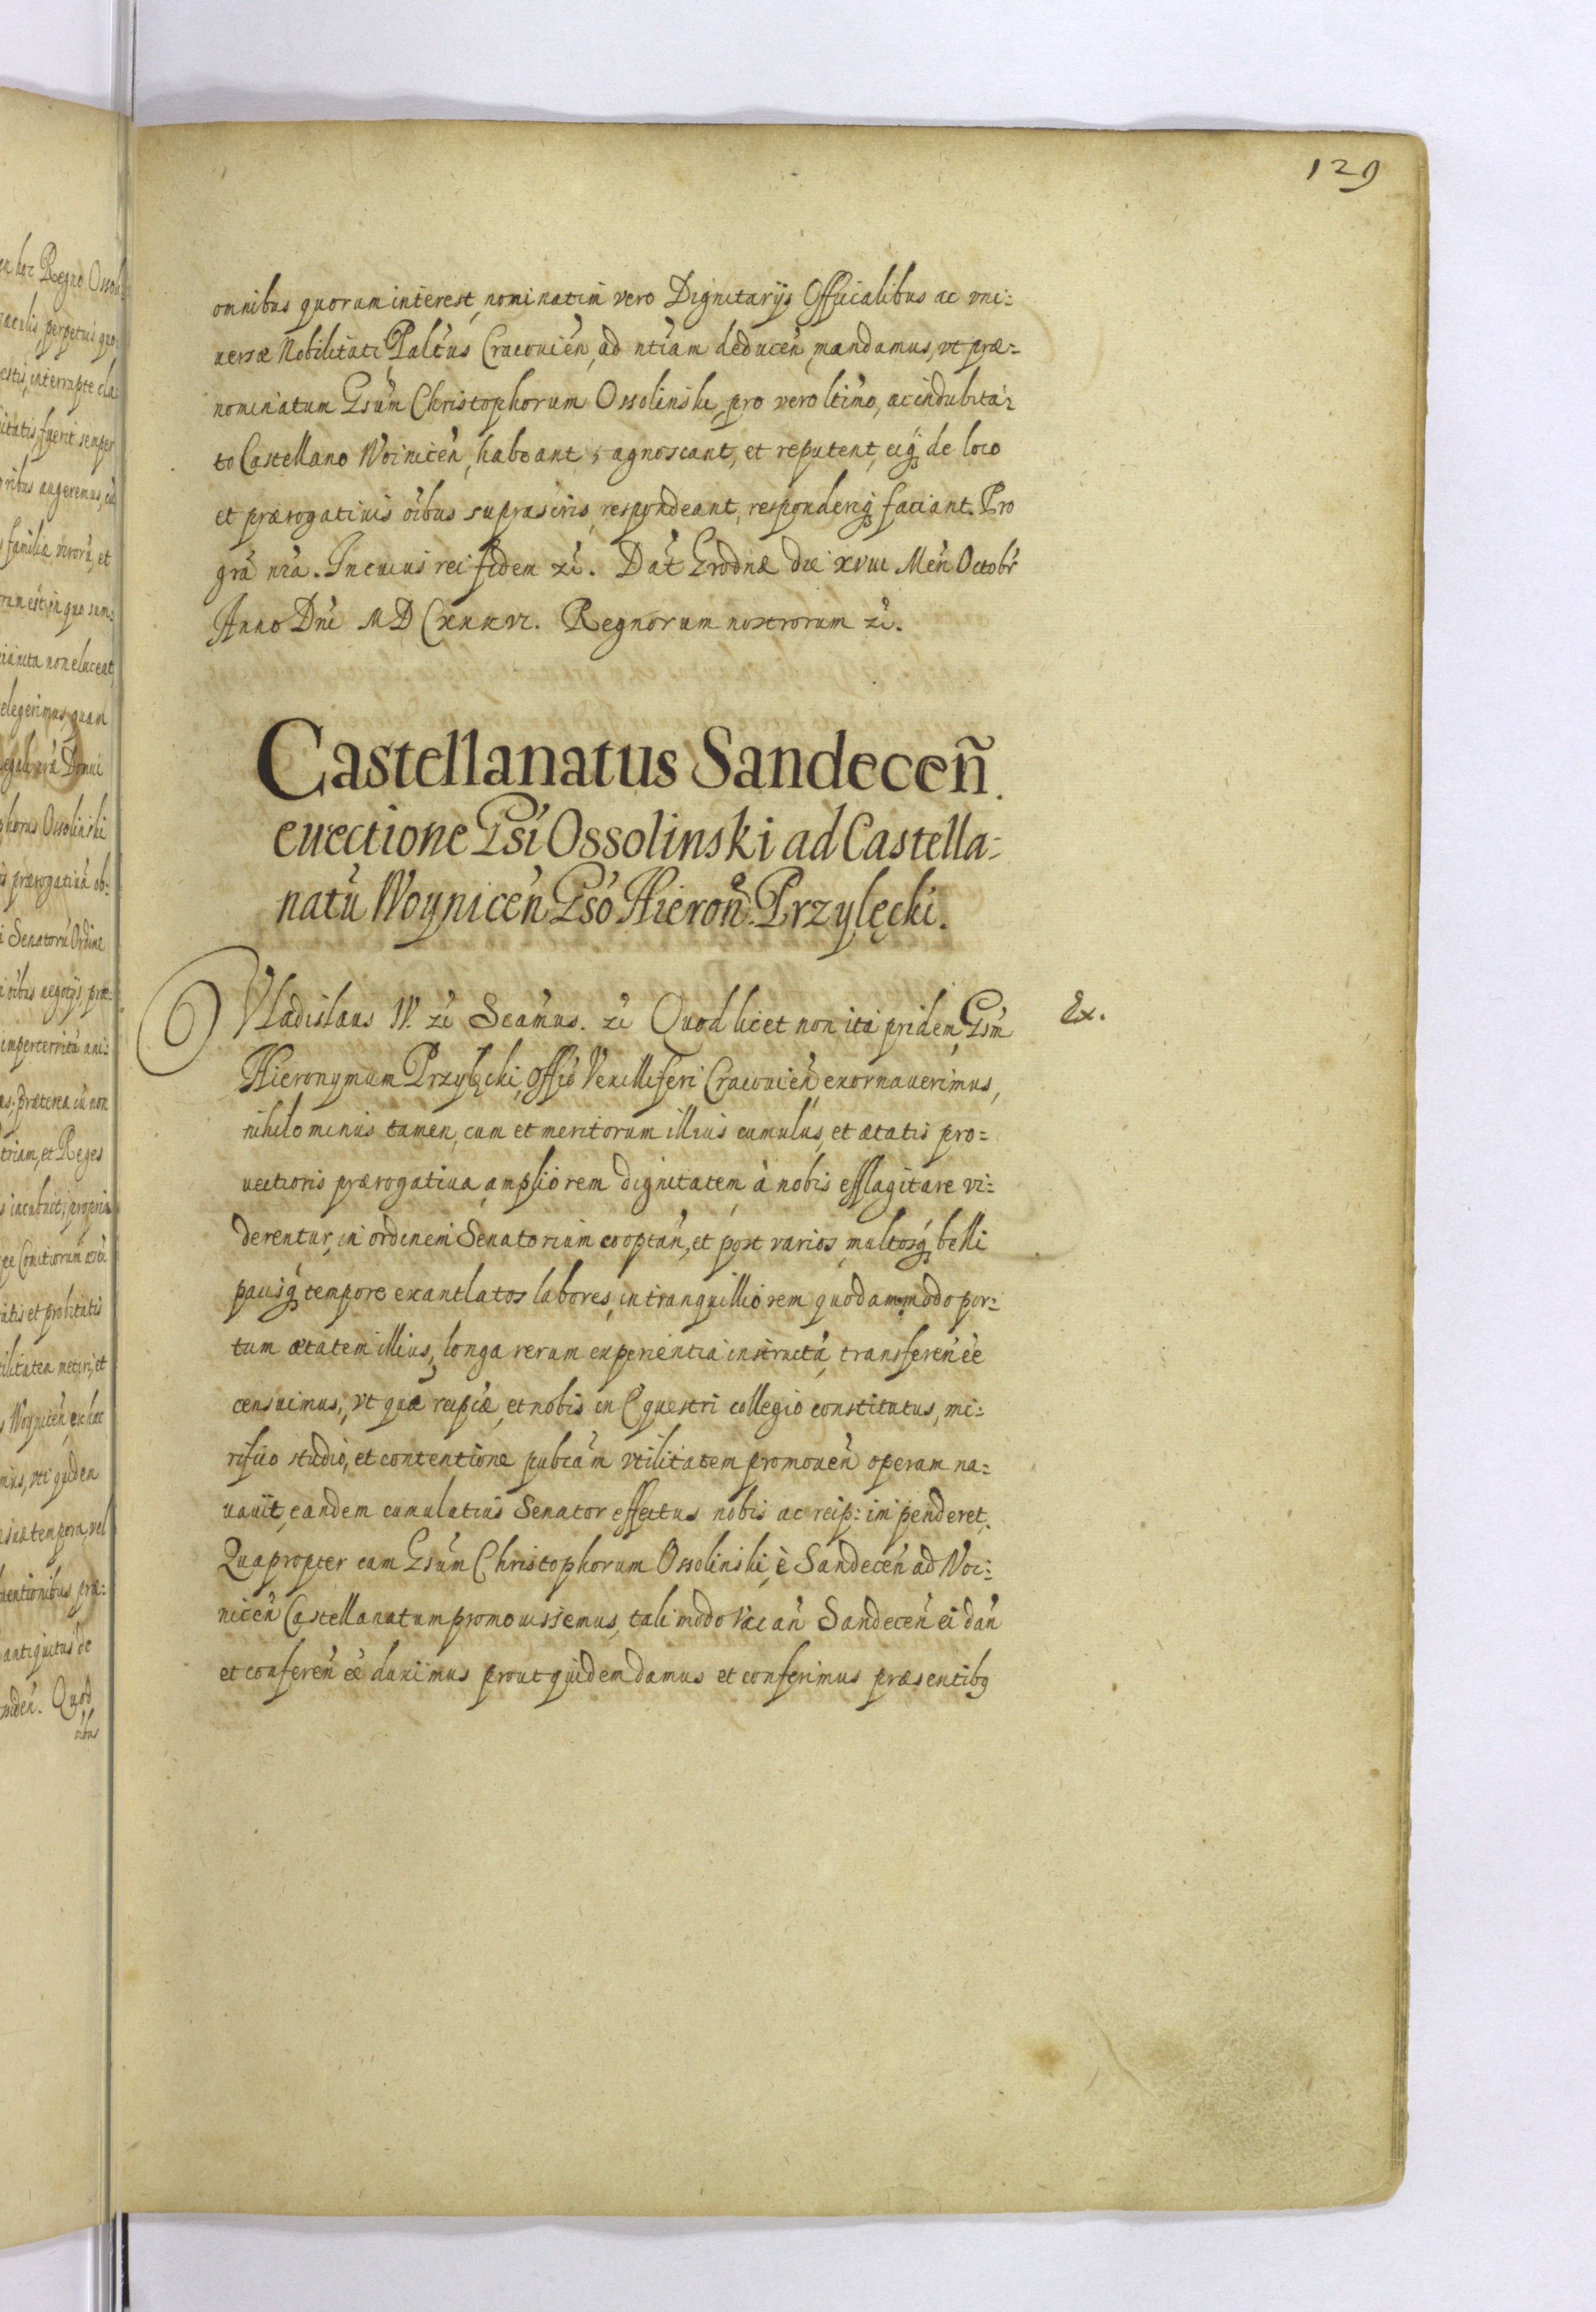 129
omnibus quorum interest, nominatim vero Dignitarijs Officialibus ac vni-
uersæ Nobilitati Paltus Cracouien, ad ntiam deducen, mandamus, vt præ-
nominatum Gsum Christophorum Ossolinski, pro vero ltimo, ac indubita-
to Castellano Woinicen, habeant, agnoscant, et reputent, eiq de loco
et prærogatiuis oibus suprascris, respondeant, responderiq faciant. Pro
gra nra. In cuius rei fidem zc. Dat Grodnæ die xviii Men Octobr
Anno Dni MDCxxxvi. Regnorum nostrorum zc.
Castellanatus Sandecen.
euectione Gsi Ossolinski ad Castella-
natu Woynicen Gso Hieron. Przylęcki.
Vladislaus IV. zc Scamus. zc Quod licet non ita pridem, Gsm
Ex.
Hieronymum Przyłęcki, offio Vexilliferi Cracouien, exornauerimus,
nihilo minus tamen, cum et meritorum illius cumulus, et ætatis pro-
uectioris prærogatiua, ampliorem dignitatem à nobis efflagitare vi-
derentur, in ordinem Senatorium cooptan, et post varios, multosq belli
pacisq tempore exantlatos labores, in tranquilliorem quodammodo por-
tum ætatem illius, longa rerum experientia instructa, transferen ee
censuimus, vt quæ reipcæ, et nobis in Equestri collegio constitutus, mi-
rifico studio, et contentione pubcam vtilitatem promouen operam na-
uauit, eandem cumulatius Senator effectus nobis ac reip: impenderet.
Quapropter cum Gsum Christophorum Ossolinski, è Sandecen ad Woi-
nicen Castellanatum promouissemus, tali modo Vacan Sandecen ei dan
et conferen ee duximus prout quidem damus et conferimus præsentibq